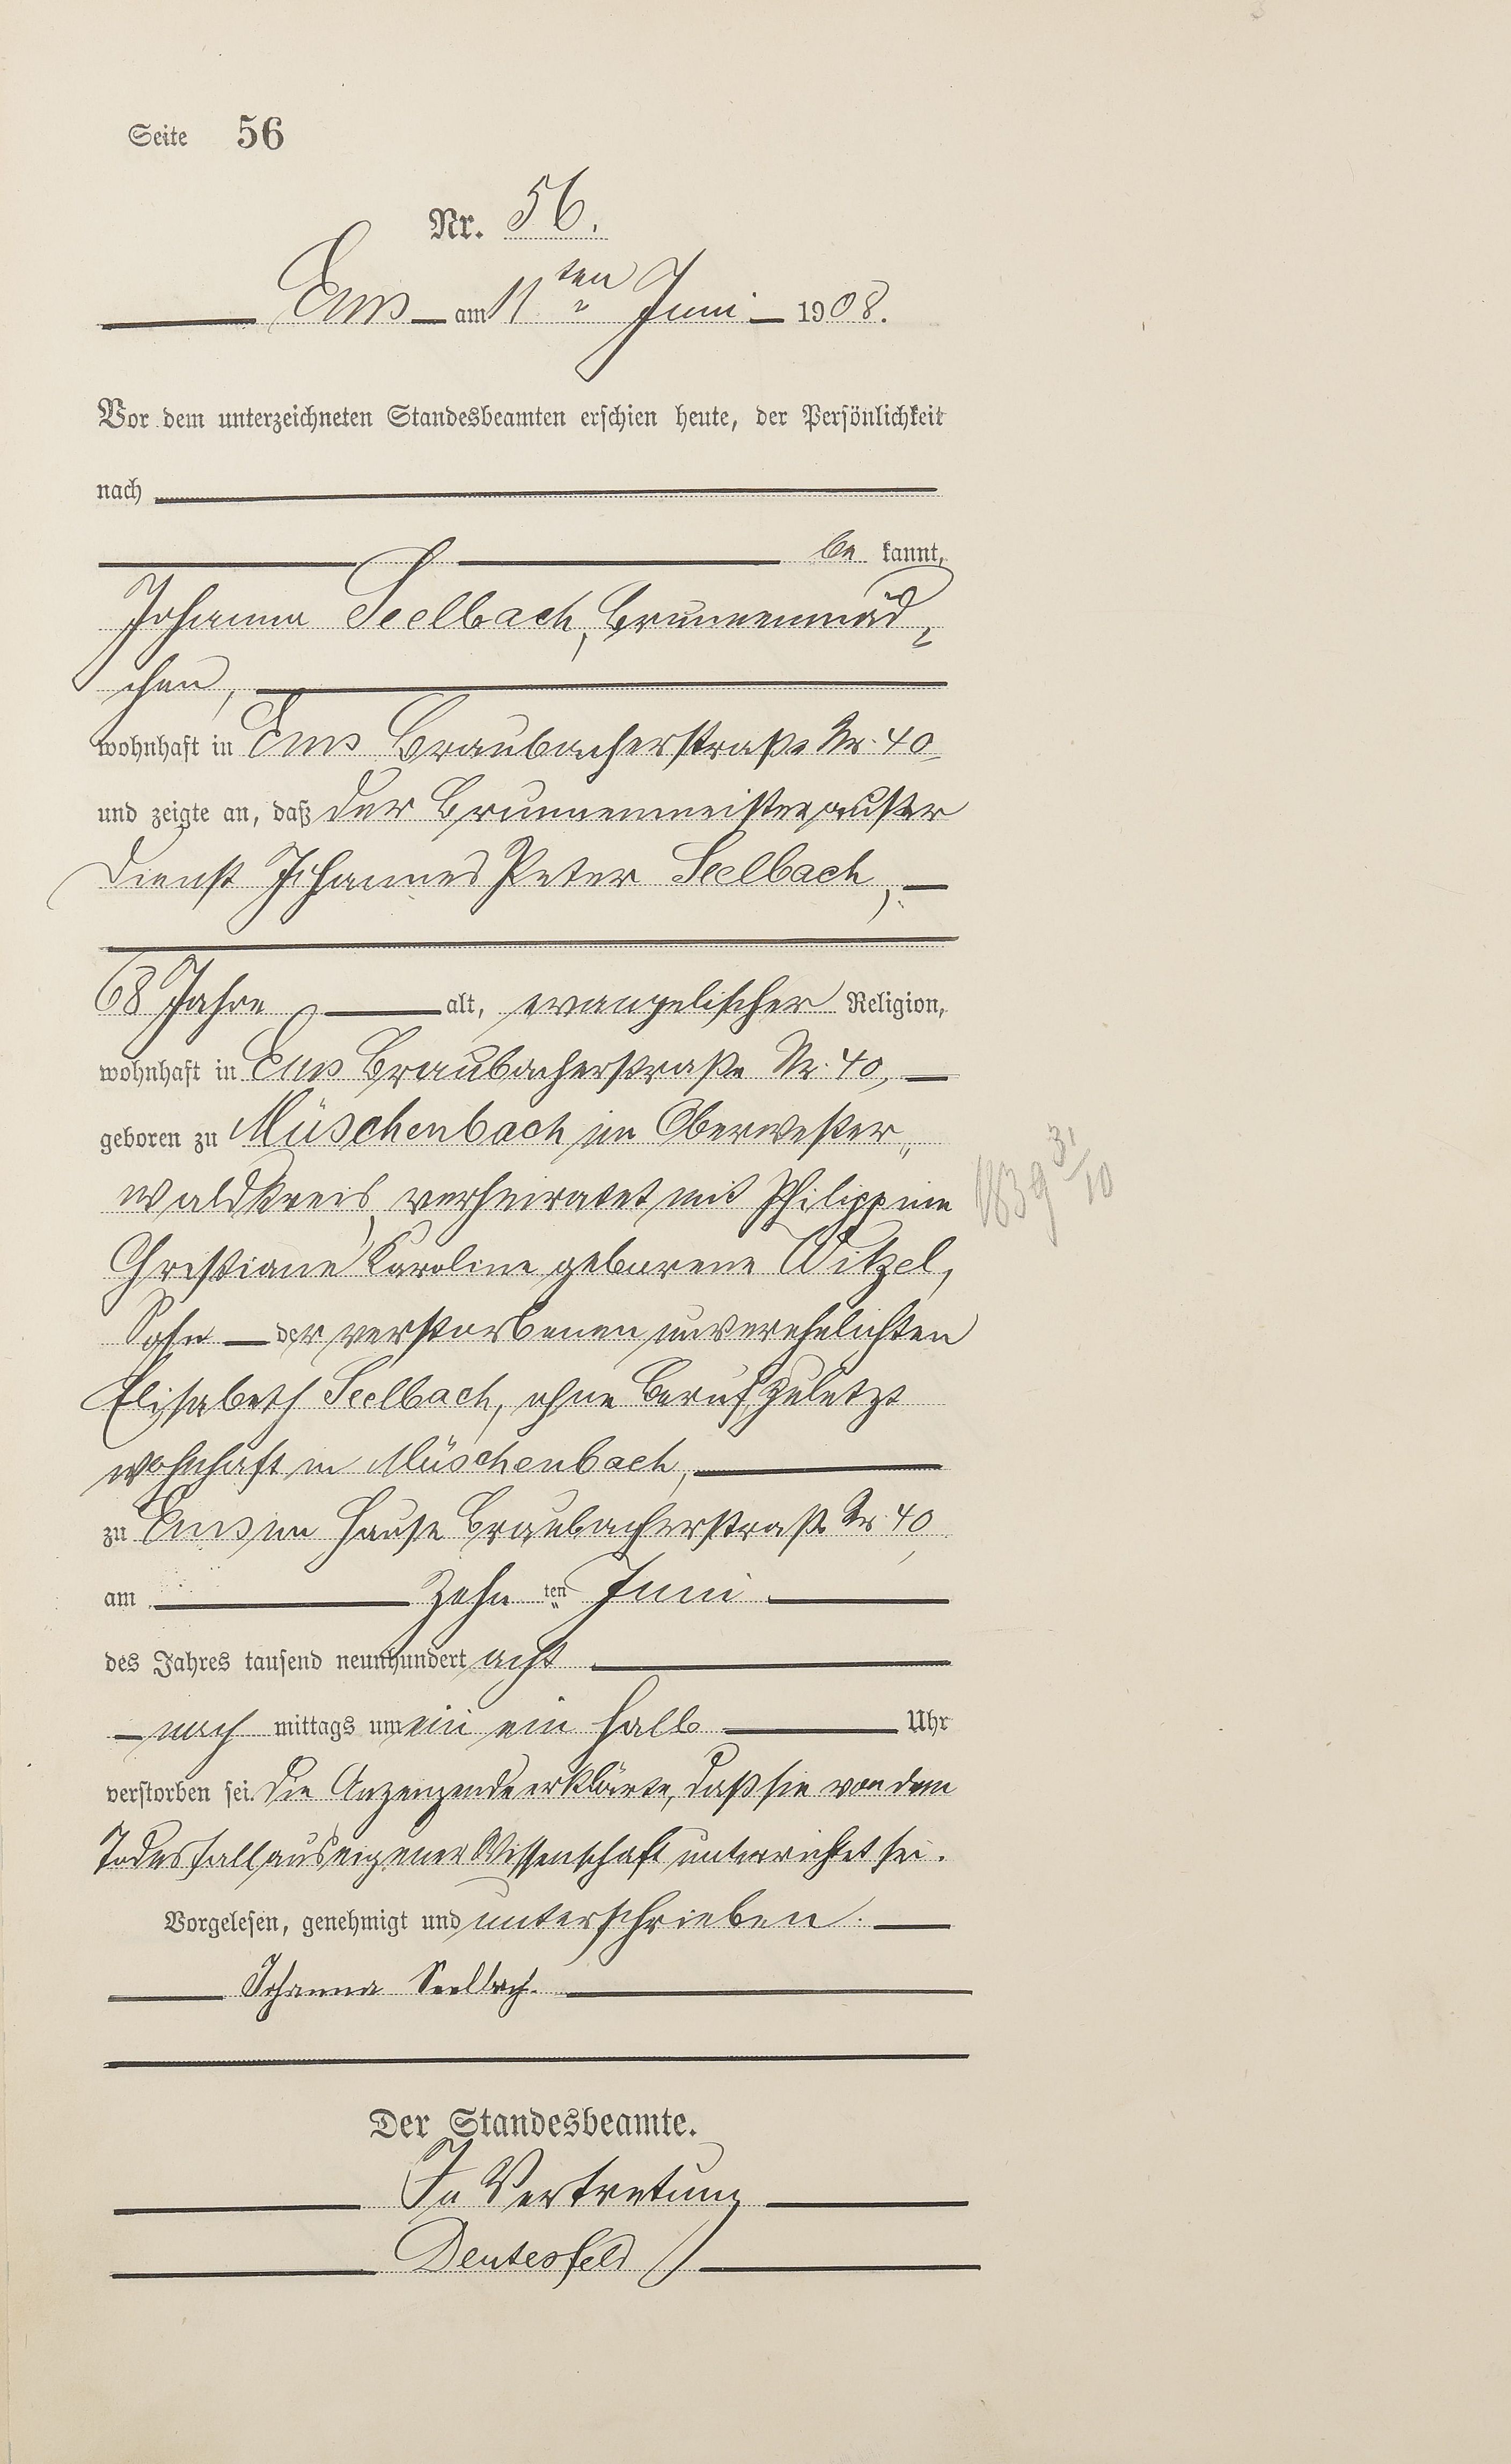 Seite 56
Nr. 56.
Ems am 11ten Juni 1908.
Vor dem unterzeichneten Standesbeamten erschien heute, der Persönlichkeit
nach
be kannt,
Johanna Seelbach, Brunnenmäd-
chen,
wohnhaft in Ems Braubacherstraße Nr. 40
und zeigte an, daß der Brunnenmeister außer
Dienst Johannes Peter Seelbach,
68 Jahre alt, evangelischer Religion,
wohnhaft in Ems Braubacherstraße Nr. 40,
geboren zu Müschenbach im Oberwester-
waldkreis, verheiratet mit Philippine
1839 31/10
Christiane Karoline geborene Witzel,
Sohn der verstorbenen unverehelichten
Elisabeth Seelbach, ohne Beruf, zuletzt
wohnhaft in Müschenbach,
zu Ems im Hause Braubacherstraße Nr. 40,
am zehn ten Juni
des Jahres tausend neunhundert acht
nach mittags um ein ein halb Uhr
verstorben sei. Die Anzeigende erklärte, daß sie von dem
Todesfall aus eigener Wissenschaft unterrichtet sei.
Vorgelesen, genehmigt und unterschrieben.
Johanna Seelbach.
Der Standesbeamte.
In Vertretung
Deutesfeld